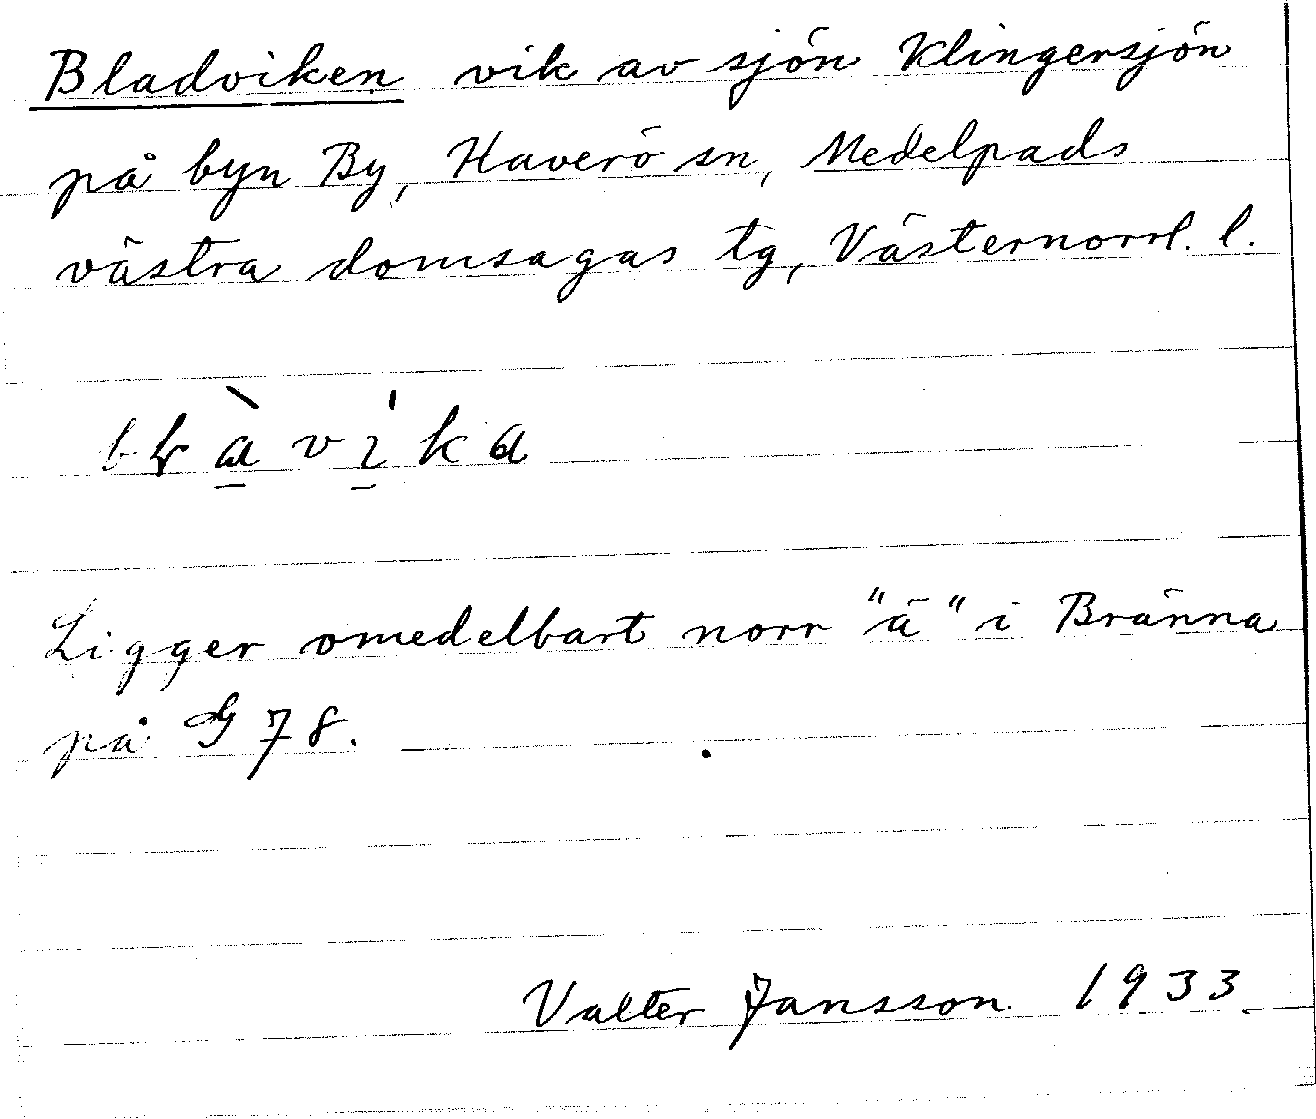 Bladviken vik av sjön Klingersjön
på byn By, Haverö sn, Medelpads
västra domsagas tg, Västernorrl. l.
Ligger omedelbart norr "ä" i Bränna
på G 78.
Valter Jansson 1933